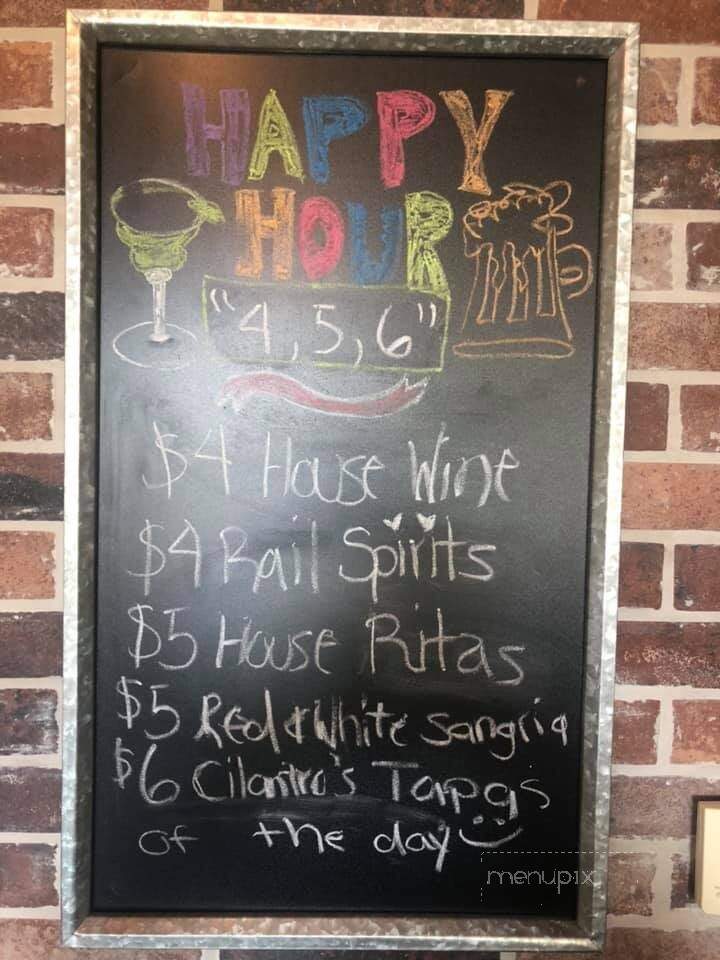 HAPPY
HOUR
"4,5,6"
$4 House Wine
$4 Rail Spirits
$5 House Ritas
$5 Red & White Sangria
$6 Cilantro's Tapas
of the day
menupix